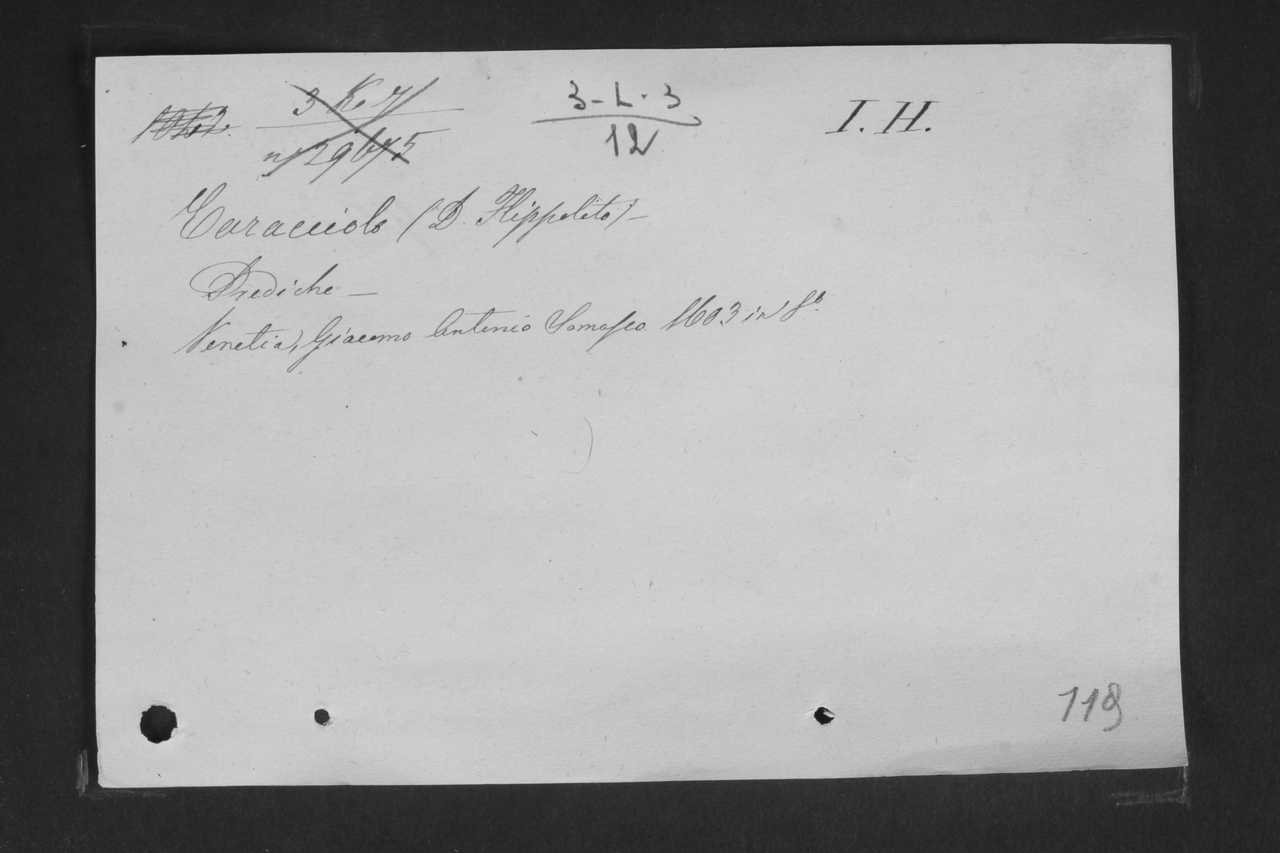 3 K. 7
3-L.3
12
I. H.
n/29675
Caracciolo (D. Hippolito) –
Prediche –
Venetia, Giacomo Antonio Somasco 1603 in 8º.
119